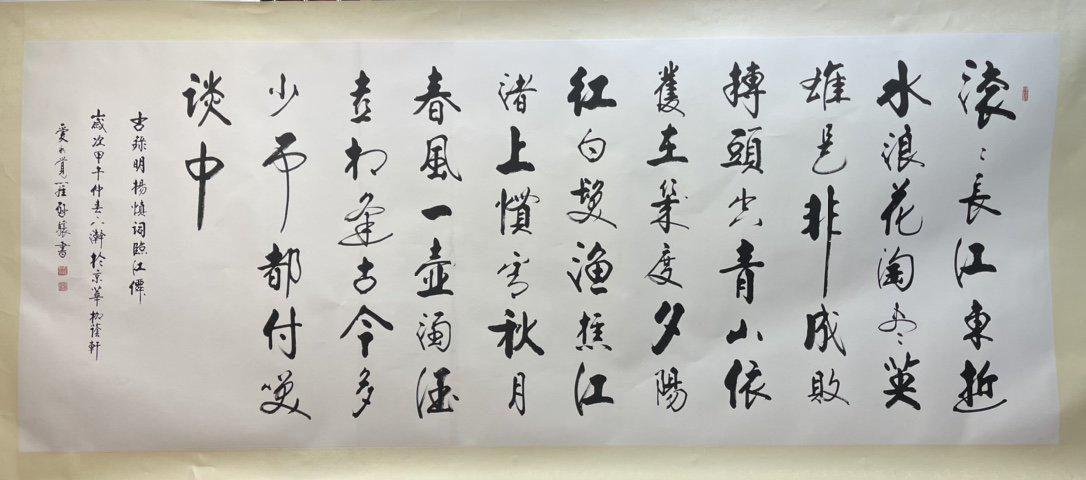 滚〻長江東逝
水浪花淘尽英
雄是非成敗
轉頭空青山依
舊在幾度夕陽
红白髮漁樵江
渚上慣看秋月
春風一壺濁酒
喜相逢古今多
少事都付笑
談中
右錄明楊慎詞臨江僊
歲次甲午仲春於京華軒
愛新覺羅啟驤書